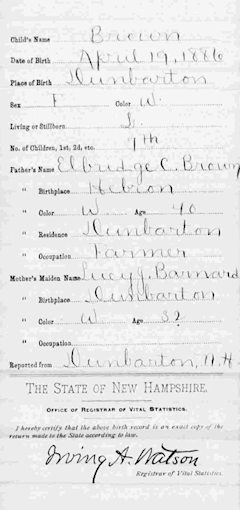 Child's Name Brown
Date of Birth April 19, 1886
Place of Birth Dunbarton
Sex F Color W.
Living or Stillborn L
No. of Children, 1st, 2d, etc. 7th
Father's Name Elbridge C. Brown
" Birthplace Hebron
" Color W Age 40
" Residence Dunbarton
" Occupation Farmer
Mother's Maiden Name Lucy J. Barnard
" Birthplace Dunbarton
" Color W Age 32
" Occupation
Reported from Dunbarton, N.H.
THE STATE OF NEW HAMPSHIRE.
OFFICE OF REGISTRAR OF VITAL STATISTICS.
I hereby certify that the above birth record is an exact copy of the
return made to the State according to law.
Irving A. Watson
Registrar of Vital Statistics.